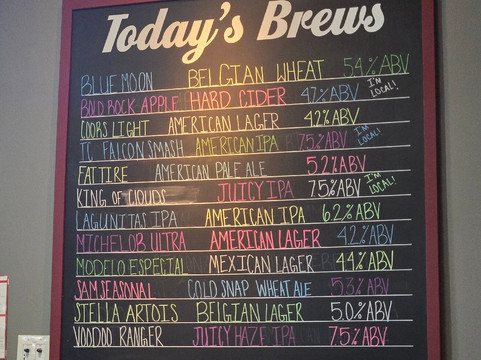 Today's Brews
BLUE MOON BELGIAN WHEAT 5.4% ABV
BOLD ROCK APPLE HARD CIDER 4.7% ABV I'M LOCAL!
COORS LIGHT AMERICAN LAGER 4.2% ABV
TC FALCON SMASH AMERICAN IPA 7.5% ABV I'M LOCAL!
FAT TIRE AMERICAN PALE ALE 5.2% ABV
KING OF CLOUDS JUICY IPA 7.5% ABV I'M LOCAL!
LAGUNITAS IPA AMERICAN IPA 6.2% ABV
MICHELOB ULTRA AMERICAN LAGER 4.2% ABV
MODELO ESPECIAL MEXICAN LAGER 4.4% ABV
SAM SEASONAL COLD SNAP WHEAT ALE 5.3% ABV
STELLA ARTOIS BELGIAN LAGER 5.0% ABV
VOODOO RANGER JUICY HAZE IPA 7.5% ABV